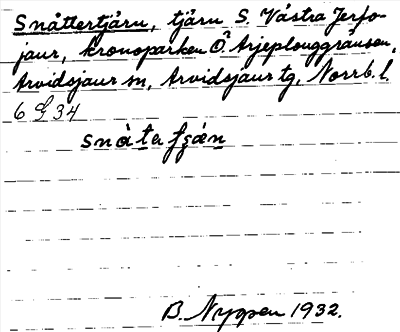 Snåttertjärn, tjärn S. Västra Jerfo-
jaur, kronoparken Ö Arjeplouggränsen,
Arvidsjaur sn, Arvidsjaur tg, Norrb. l.
6 G 34
snåter fɕæn
B. Nyqpen 1932.